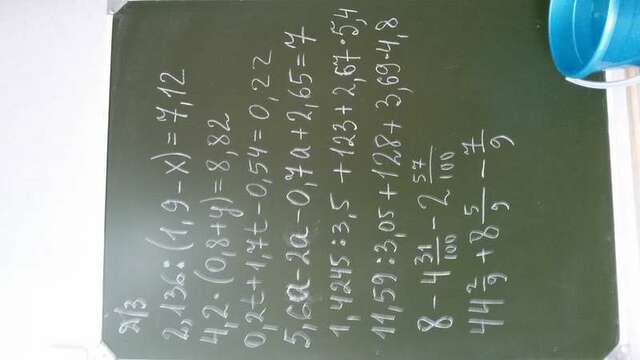 Д/З
2,136:(1,9-x)=7,12
4,2·(0,8+y)=8,82
0,2t+1,7t-0,54=0,22
5,6a-2a-0,7a+2,65=7
1,4245:3,5+123+2,67·5,4
11,59:3,05+128+3,69·4,8
8-4 31/100-2 57/100
44 2/9+8 5/9-7/9